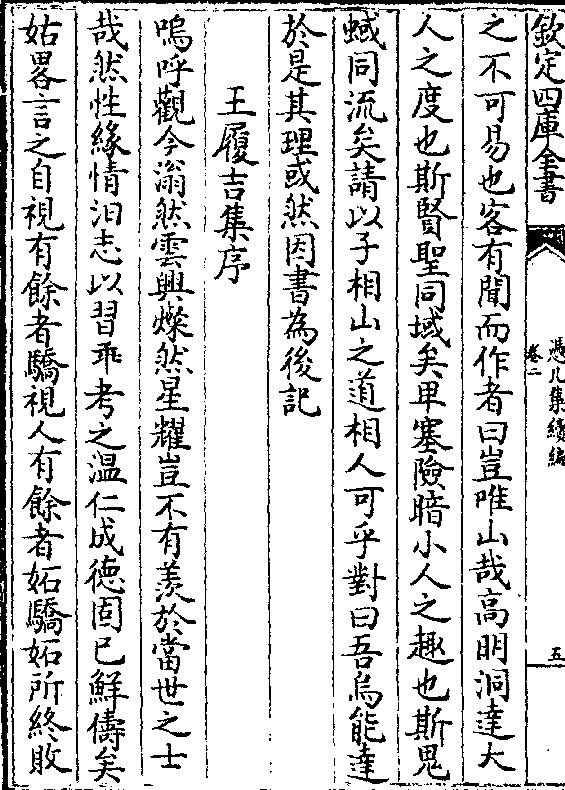 欽定四庫全書
憑几集續編
卷二
五
之不可易也客有聞而作者曰豈唯山哉高明洞達大
人之度也斯賢聖同域矣卑塞險暗小人之趣也斯鬼
蜮同流矣請以子相山之道相人可乎對曰吾烏能達
於是其理或然因書為後記
王履吉集序
嗚呼觀今滃然雲興燦然星耀豈不有羨於當世之士
哉然性緣情汨志以習乖考之温仁成德固已鮮儔矣
姑畧言之自視有餘者驕視人有餘者妬驕妬所終敗